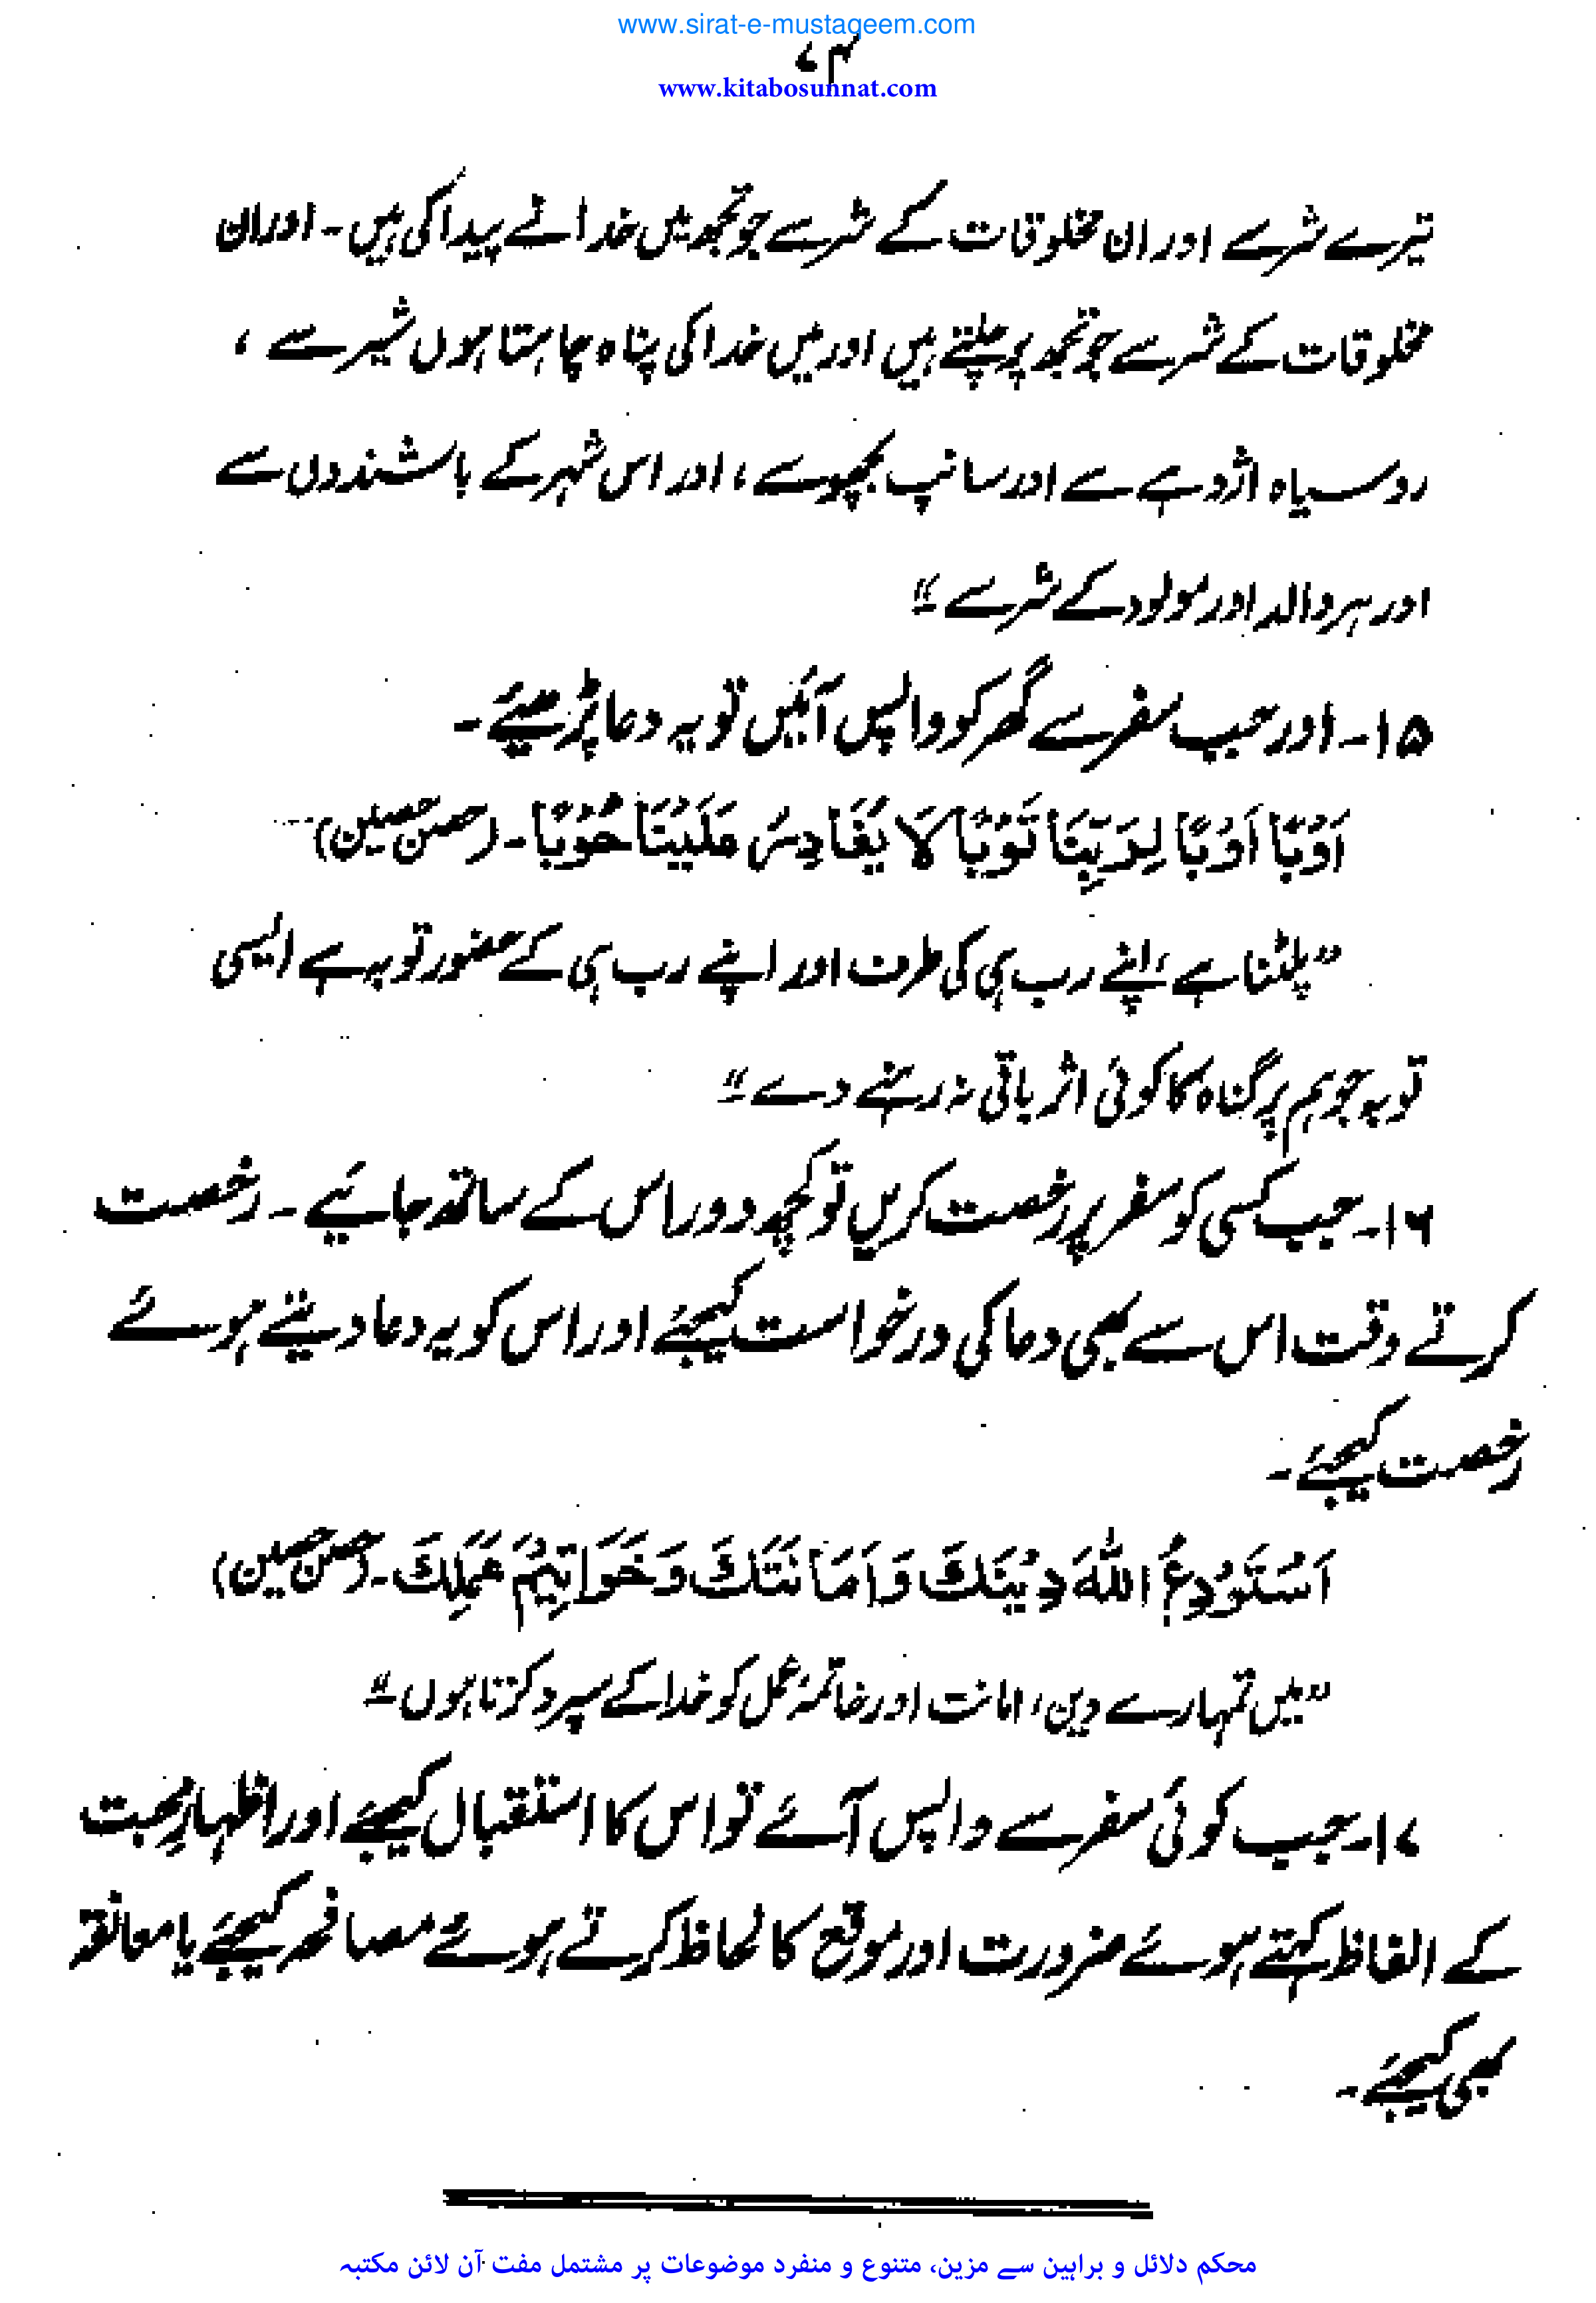 www.sirat-e-mustaqeem.com
۷۴
www.kitabosunnat.com
تیرے شر سے اور ان مخلوقات کے شر سے جو تجھ میں خدا نے پیدا کی ہیں۔ اور ان
مخلوقات کے شر سے جو تجھ پر چلتے ہیں اور میں خدا کی پناہ چاہتا ہوں شیر سے،
روسیاہ اژدہے سے اور سانپ بچھو سے، اور اس شہر کے باشندوں سے
اور ہر والد اور مولود کے شر سے“
۱۵۔ اور جب سفر سے گھر کو واپس آئیں تو یہ دعا پڑھیئے۔
اَوْبًا اَوْبًا لِرَبِّنَا تَوْبًا لَا یُغَادِرُ عَلَیْنَا حُوْبًا۔ (حصن حصین)
”پلٹنا ہے، اپنے رب ہی کی طرف اور اپنے رب ہی کے حضور توبہ ہے ایسی
توبہ جو ہم پر گناہ کا کوئی اثر باقی نہ رہنے دے“
۱۶۔ جب کسی کو سفر پر رخصت کریں تو کچھ دور اس کے ساتھ جائیے۔ رخصت
کرتے وقت اس سے بھی دعا کی درخواست کیجئے اور اس کو یہ دعا دیتے ہوئے
رخصت کیجئے۔
اَسْتَوْدِعُ اللّٰهَ دِیْنَكَ وَاَمَانَتَكَ وَخَوَاتِیْمَ عَمَلِكَ۔ (حصن حصین)
”میں تمہارے دین، امانت اور خاتمۂ عمل کو خدا کے سپرد کرتا ہوں“
۱۷۔ جب کوئی سفر سے واپس آئے تو اس کا استقبال کیجئے اور اظہارِ محبت
کے الفاظ کہتے ہوئے ضرورت اور موقع کا لحاظ کرتے ہوئے مصافحہ کیجئے یا معانقہ
بھی کیجئے۔
محکم دلائل و براہین سے مزین، متنوع و منفرد موضوعات پر مشتمل مفت آن لائن مکتبہ